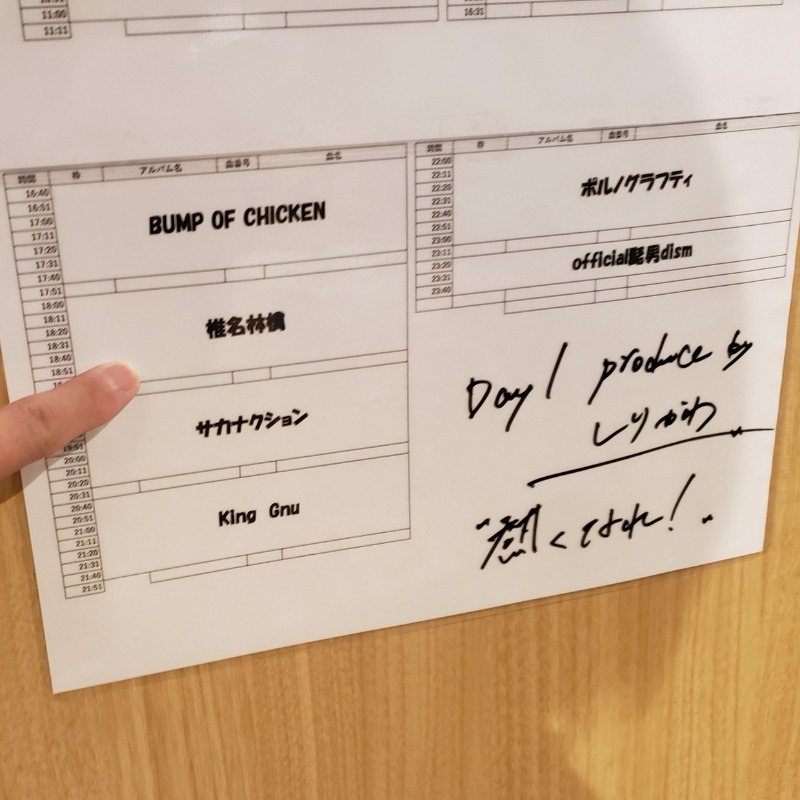 11:00
11:11
16:31
時間 枠 アルバム名 曲番号 曲名
16:40
16:51
17:00
17:11
17:20
17:31
17:40
17:51
18:00
18:11
18:20
18:31
18:40
18:51
BUMP OF CHICKEN
椎名林檎
サカナクション
19:51
20:00
20:11
20:20
20:31
20:40
20:51
21:00
21:11
21:20
21:31
21:40
21:51
King Gnu
時間 枠 アルバム名 曲番号 曲名
22:00
22:11
22:20
22:31
22:40
22:51
23:00
23:11
23:20
23:31
23:40
ポルノグラフティ
Official髭男dism
Day 1 produce by
しりがわ